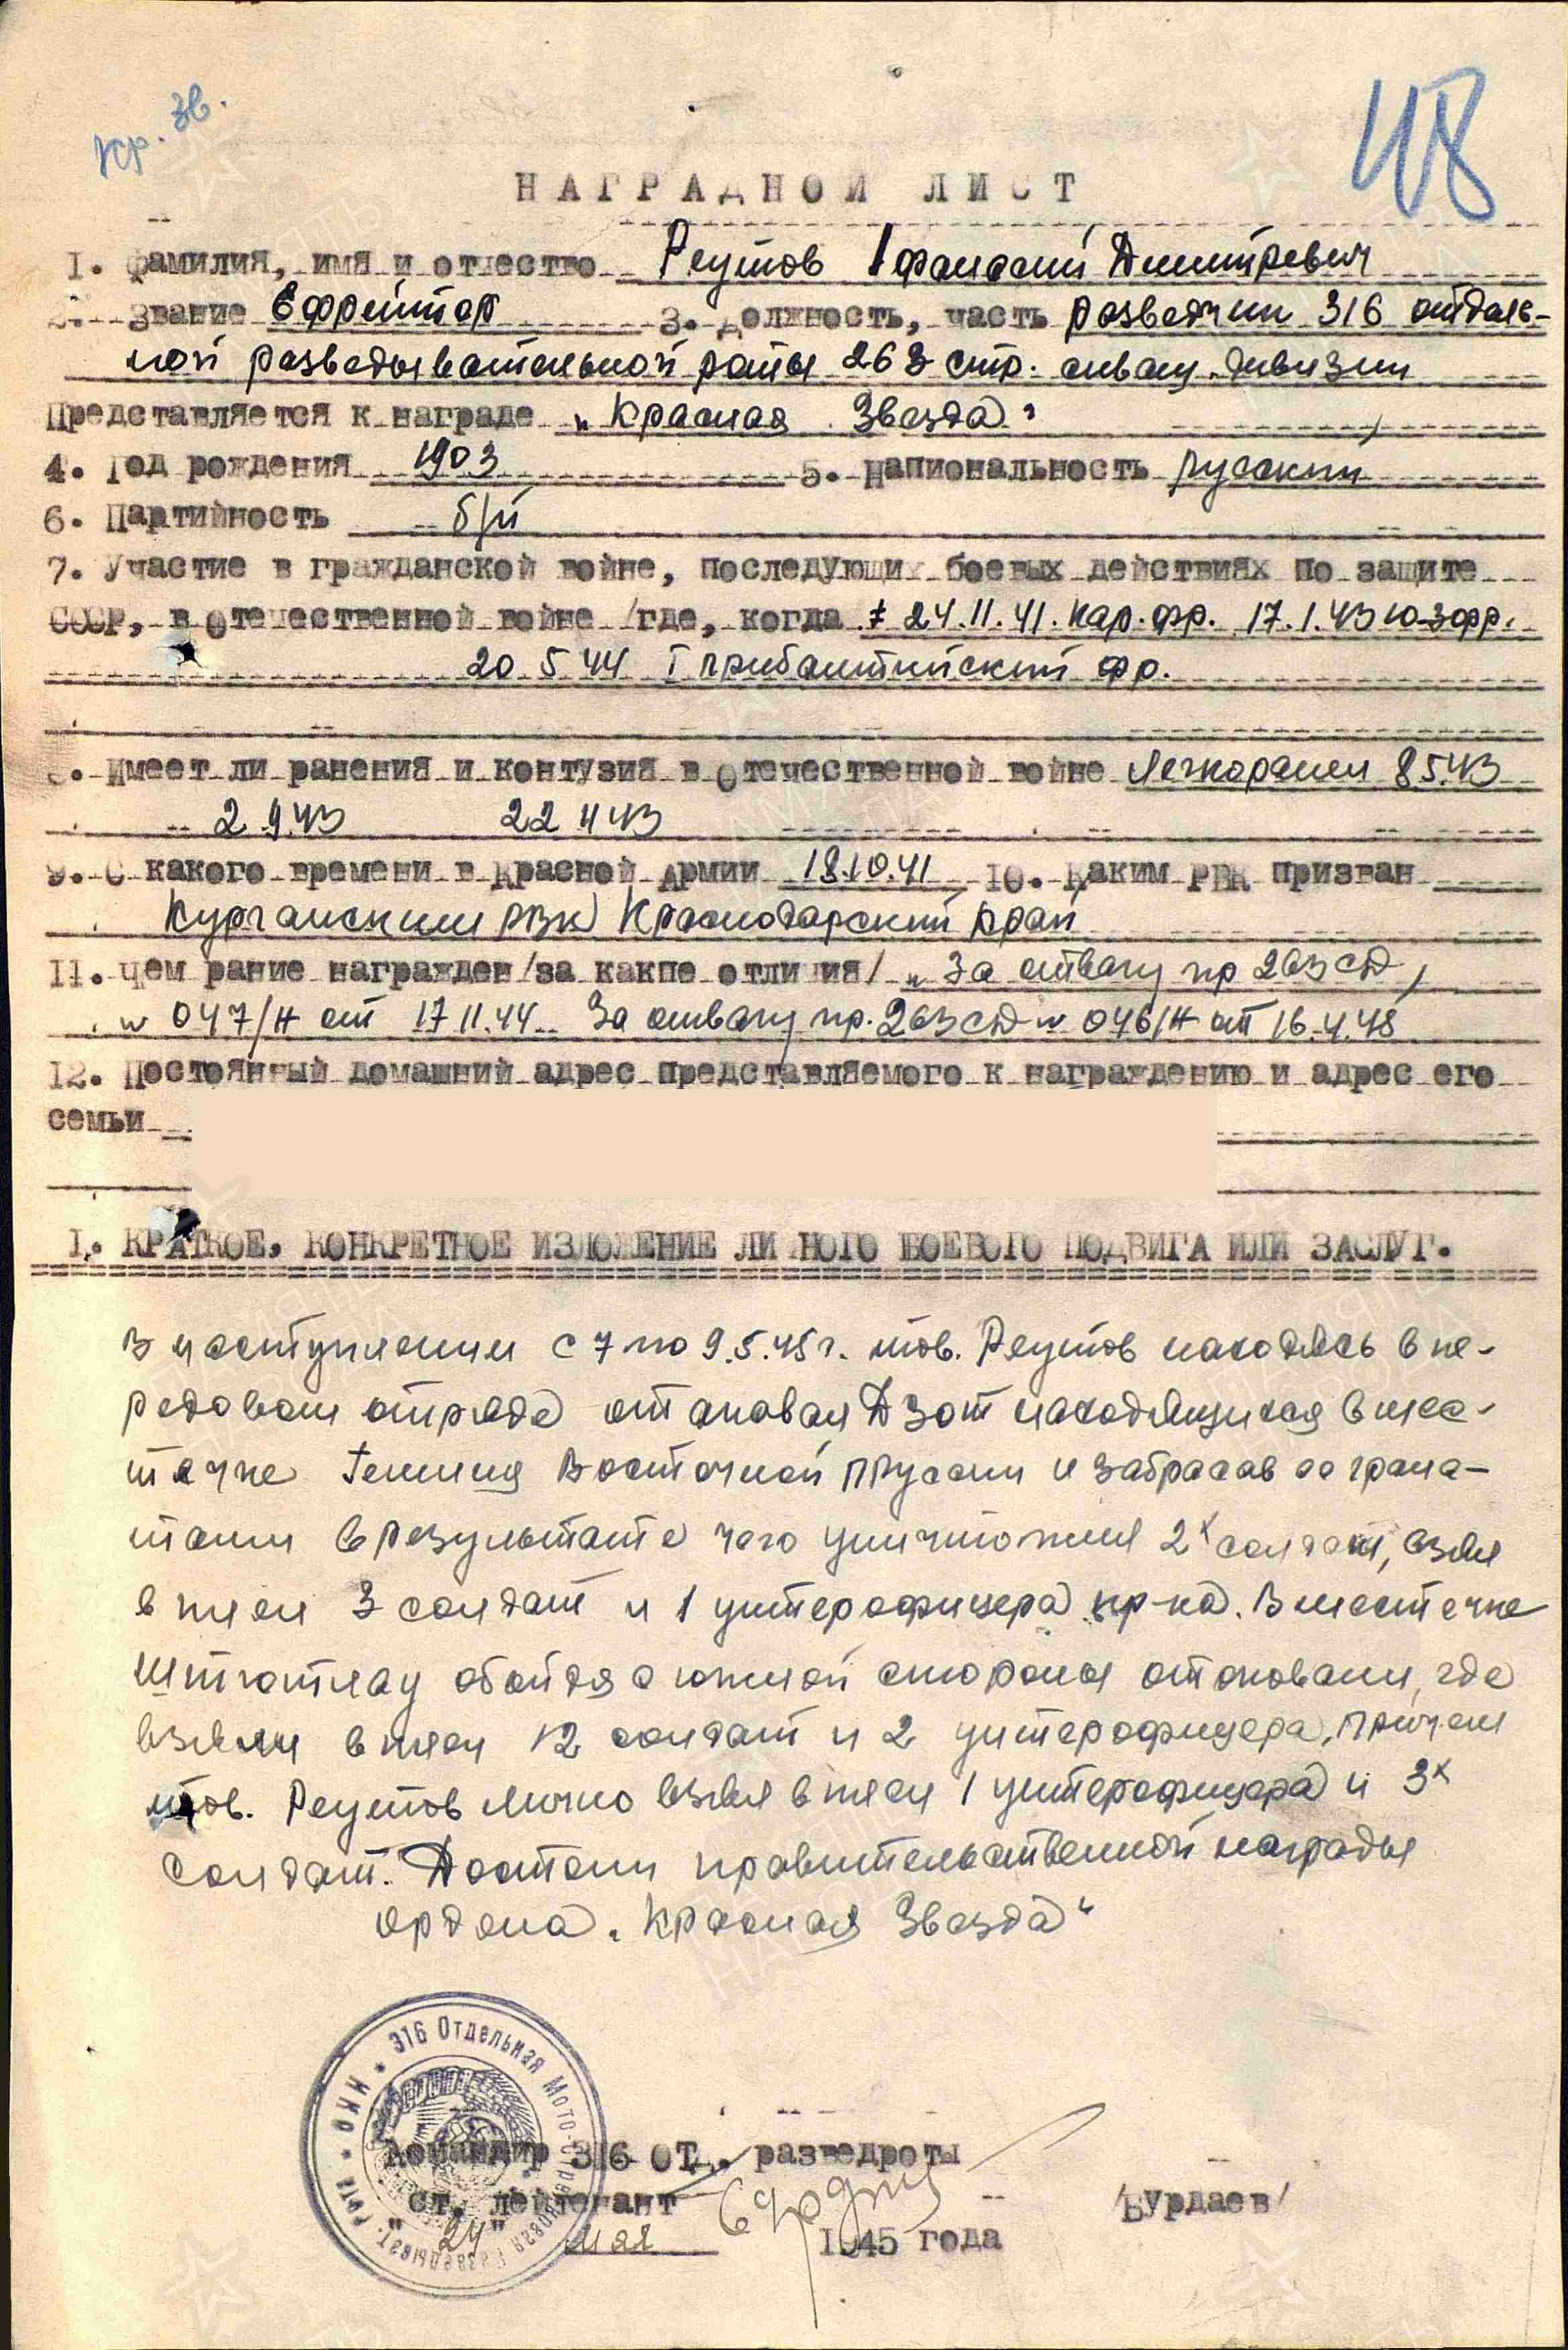 кр. зв.
48
НАГРАДНОЙ ЛИСТ
1. Фамилия, имя и отчество Реутов Афанасий Дмитревич
2. Звание Ефрейтор 3. Должность, часть разведчик 316 отдель-
ной разведывательной роты 263 стр. сиваш. дивизии
Представляется к награде „Красная Звезда"
4. Год рождения 1903 5. Национальность русский
6. Партийность б/п
7. Участие в гражданской войне, последующих боевых действиях по защите
СССР, в отечественной войне /где, когда с 24.11.41. Кар. фр. 17.1.43 ю-з фр.
20 5 44 I прибалтийский фр.
8. Имеет ли ранения и контузия в отечественной войне Легкоранен 8 5.43
2 9.43 22 11 43
9. С какого времени в Красной Армии 18.10.41 10. Каким РВК призван
Курганским РВК Краснодарский край
11. Чем рание награжден /за какие отличия/ „За отвагу пр 263 сд,
N 047/н от 17 11.44 За отвагу пр. 263 сд N 046/н от 16.4.45
12. Постоянный домашний адрес представляемого к награждению и адрес его
семьи
I. КРАТКОЕ, КОНКРЕТНОЕ ИЗЛОЖЕНИЕ ЛИЧНОГО БОЕВОГО ПОДВИГА ИЛИ ЗАСЛУГ.
В наступлении с 7 по 9.5.45 г. тов. Реутов находясь в пе-
редовом отряде отаковал Дзот находящихся в мес-
течке Восточной Пруссии и забрасав ее грана-
тами в результате чего уничтожил 2х солдат, взял
в плен 3 солдат и 1 унтерофицера пр-ка. В местечке
Штютлау обойдя с южной стороны отаковали, где
взяли в плен 12 солдат и 2 унтерофицера, причем
тов. Реутов лично взял в плен 1 унтерофицера и 3х
солдат. Достоин правительственной награды
ордена „Красная Звезда"
316 Отдельная Мото-стрелковая Разведыват. Рота * НКО *
Командир 316 ОТд. разведроты
ст. лейтенант /Бурдаев/
"24" мая 1945 года